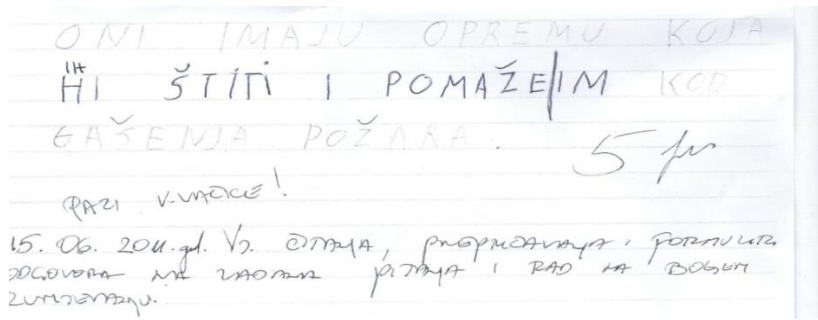 ONI IMAJU OPREMU KOJA
IH
HI ŠTITI I POMAŽE|IM KOD
GAŠENJA POŽARA.
5
PAZI KVAČICE!
15. 06. 2011. g. Vj. ČITANJA, PREPRIČAVANJA I FORMULIR.
ODGOVORA NA ZADANA PITANJA I RAD NA BOLJEM
RAZUMIJEVANJU.